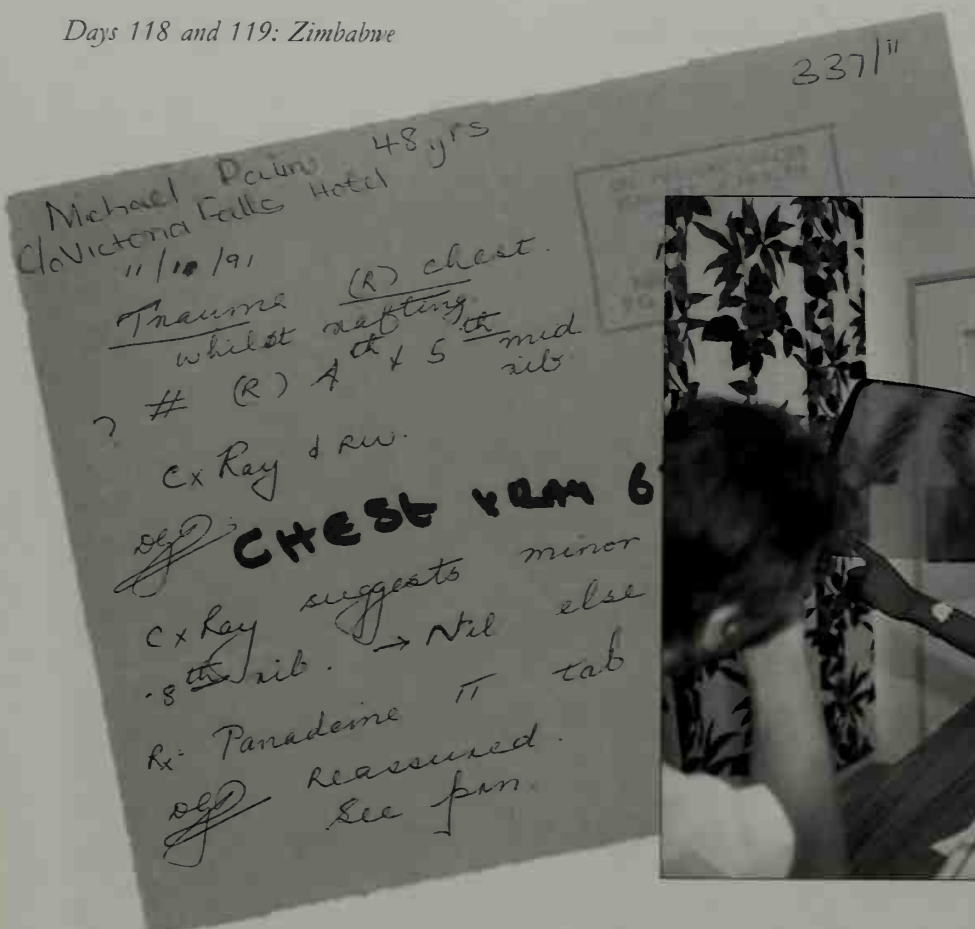 Days 118 and 119: Zimbabwe
337/11
Michael Palin 48 yrs
C/o Victoria Falls Hotel
11/10/91
Trauma (R) chest.
whilst rafting.
? # (R) 4th & 5th mid
rib.
Cx Ray & RW.
CHEST XRAY 6
Cx Ray suggests minor
8th rib. → Nil else
Rx: Panadeine II tab
Reassured.
See prn.